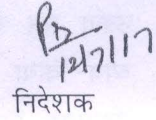 12/7/17
निदेशक